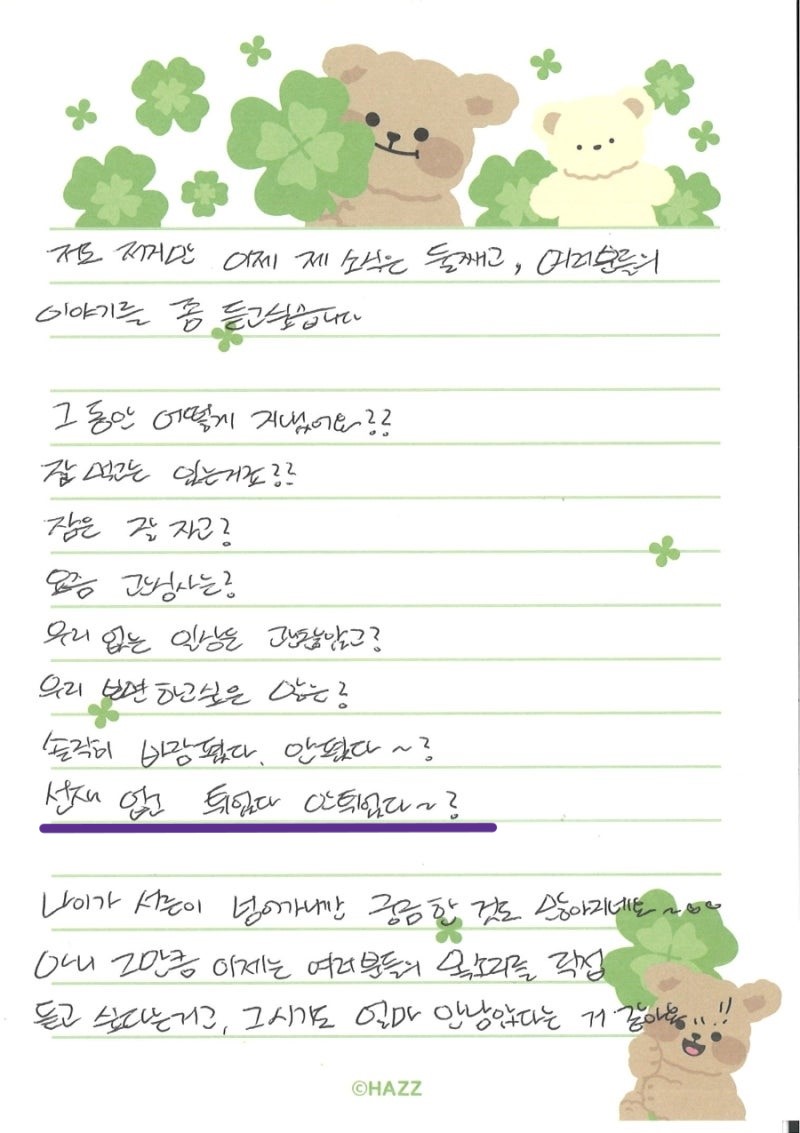 저도 저지만 이제 제 소식은 둘째고, 여러분들의
이야기를 좀 듣고싶습니다
그 동안 어떻게 지냈어요??
잘 먹고는 있는거죠??
잠은 잘 자고?
요즘 관심사는?
우리 없는 일상은 괜찮았고?
우리 보면 하고싶은 않는?
솔직히 바람폈다. 안폈다~?
선재 업고 튀었다 안튀었다~?
나이가 서른이 넘어가니깐 궁금한 것도
아니 그만큼 이제는 여러분들의 목소리를 직접
듣고 싶다는거고, 그시기도 얼마 안남았다는 거 같아요!!
©HAZZ